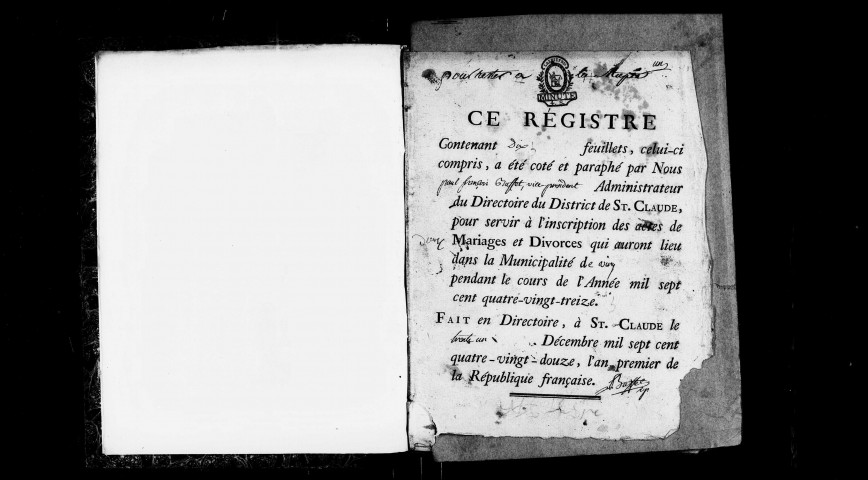 MINUTE
CE REGISTRE
Contenant dix feuillets, celui-ci
compris, a été coté et paraphé par Nous
paul françois vice-président Administrateur
du Directoire du District de ST. CLAUDE,
pour servir à l'inscription des actes de
Mariages et Divorces qui auront lieu
dans la Municipalité de
pendant le cours de l'Année mil sept
cent quatre-vingt-treize.
FAIT en Directoire, à ST. CLAUDE le
trente un Décembre mil sept cent
quatre-vingt-douze, l'an premier de
la République française.